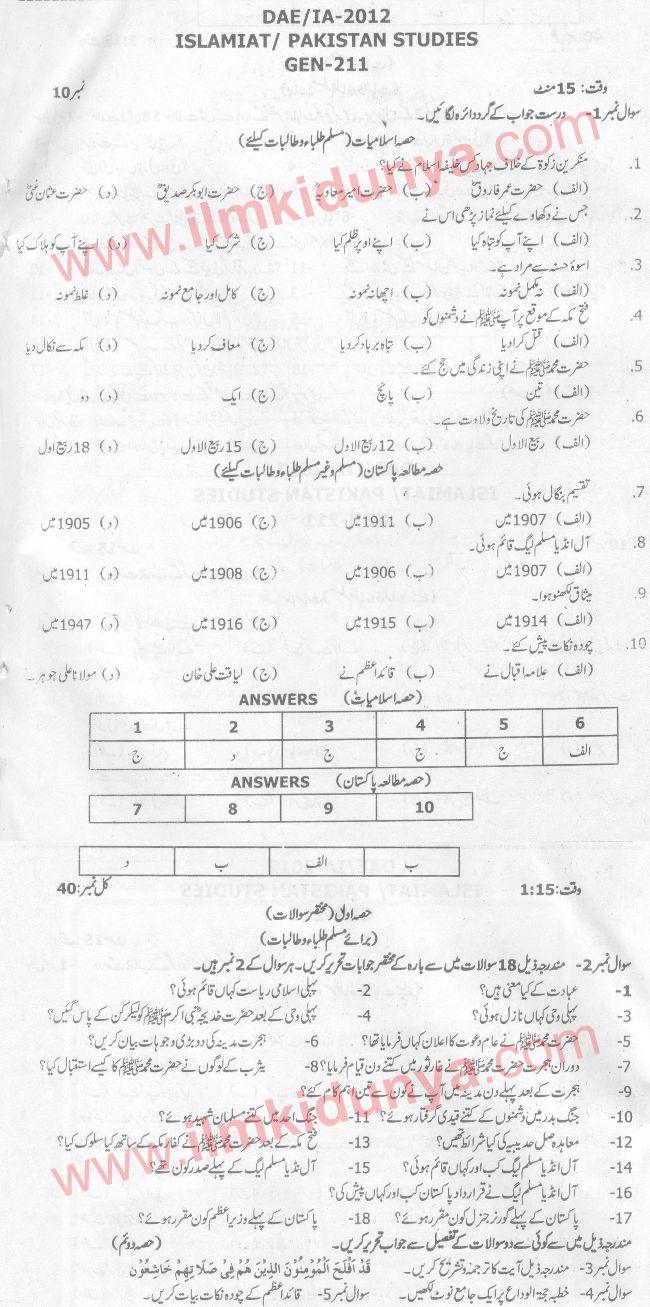 DAE/IA-2012
ISLAMIAT/ PAKISTAN STUDIES
GEN-211
وقت: 15 منٹ نمبر 10
سوال نمبر 1- درست جواب کے گرد دائرہ لگائیں۔
حصہ اسلامیات (مسلم طلباء و طالبات کیلئے)
1. منکرین زکوٰۃ کے خلاف جہاد کس خلیفہ اسلام نے کیا؟
(الف) حضرت عمر فاروقؓ (ب) حضرت امیر معاویہؓ (ج) حضرت ابوبکر صدیقؓ (د) حضرت عثمان غنیؓ
2. جس نے دکھاوے کیلئے نماز پڑھی اس نے
(الف) اپنے آپ کو تباہ کیا (ب) اپنے اوپر ظلم کیا (ج) شرک کیا (د) اپنے آپ کو ہلاک کیا
3. اسوۂ حسنہ سے مراد ہے۔
(الف) نہ مکمل نمونہ (ب) اچھا نمونہ (ج) کامل اور جامع نمونہ (د) غلط نمونہ
4. فتح مکہ کے موقع پر آپ ﷺ نے دشمنوں کو
(الف) قتل کرا دیا (ب) تباہ برباد کر دیا (ج) معاف کر دیا (د) مکہ سے نکال دیا
5. حضرت محمد ﷺ نے اپنی زندگی میں حج کئے۔
(الف) تین (ب) پانچ (ج) ایک (د) دو
6. حضرت محمد ﷺ کی تاریخ ولادت ہے۔
(الف) ربیع الاول (ب) 12 ربیع الاول (ج) 15 ربیع الاول (د) 18 ربیع اول
حصہ مطالعہ پاکستان (مسلم و غیر مسلم طلباء و طالبات کیلئے)
7. تقسیم بنگال ہوئی۔
(الف) 1907 میں (ب) 1911 میں (ج) 1906 میں (د) 1905 میں
8. آل انڈیا مسلم لیگ قائم ہوئی۔
(الف) 1907 میں (ب) 1906 میں (ج) 1908 میں (د) 1911 میں
9. میثاق لکھنو ہوا۔
(الف) 1914 میں (ب) 1915 میں (ج) 1916 میں (د) 1947 میں
10. چودہ نکات پیش کئے۔
(الف) علامہ اقبال نے (ب) قائد اعظم نے (ج) لیاقت علی خان (د) مولانا علی جوہر۔۔
ANSWERS (حصہ اسلامیات)
1 2 3 4 5 6
ج د ج ج ج الف
ANSWERS (حصہ مطالعہ پاکستان)
7 8 9 10
د ب الف ب
وقت: 1:15 کل نمبر: 40
حصہ اول (مختصر سوالات)
(برائے مسلم طلباء و طالبات)
سوال نمبر 2- مندرجہ ذیل 18 سوالات میں سے بارہ کے مختصر جوابات تحریر کریں۔ ہر سوال کے 2 نمبر ہیں۔
1- عبادت کے کیا معنی ہیں؟ 2- پہلی اسلامی ریاست کہاں قائم ہوئی؟
3- پہلی وحی کہاں نازل ہوئی؟ 4- پہلی وحی کے بعد حضرت خدیجہؓ نبی اکرم ﷺ کو لیکر کن کے پاس گئیں؟
5- حضرت محمد ﷺ نے عام دعوت کا اعلان کہاں فرمایا تھا؟ 6- ہجرت مدینہ کی دو بڑی وجوہات بیان کریں؟
7- دوران ہجرت حضرت محمد ﷺ نے غار ثور میں کتنے دن قیام فرمایا؟ 8- یثرب کے لوگوں نے حضرت محمد ﷺ کا کیسے استقبال کیا؟
9- ہجرت کے بعد پہلے دن مدینہ میں آپ نے کون سے تین اہم کام کئے؟
10- جنگ بدر میں دشمنوں کے کتنے قیدی گرفتار ہوئے؟ 11- جنگ احد میں کتنے مسلمان شہید ہوئے؟
12- معاہدہ صلح حدیبیہ کی کیا شرائط تھیں؟ 13- فتح مکہ کے بعد حضرت محمد ﷺ نے کفار مکہ کے ساتھ کیا سلوک کیا؟
14- آل انڈیا مسلم لیگ کب اور کہاں قائم ہوئی؟ 15- آل انڈیا مسلم لیگ کے پہلے صدر کون تھے؟
16- آل انڈیا مسلم لیگ نے قرارداد پاکستان کب اور کہاں پیش کی؟
17- پاکستان کے پہلے گورنر جنرل کون مقرر ہوئے؟ 18- پاکستان کے پہلے وزیر اعظم کون مقرر ہوئے؟
(حصہ دوئم) مندرجہ ذیل میں سے کوئی سے دو سوالات کے تفصیل سے جواب تحریر کریں۔
سوال نمبر 3- مندرجہ ذیل آیت کا ترجمہ و تشریح کریں۔ قَدْ اَفْلَحَ الْمُوْمِنُوْنَ الَّذِیْنَ هُمْ فِیْ صَلَاتِهِمْ خَاشِعُوْنَ
سوال نمبر 4- خطبہ حجۃ الوداع پر ایک جامع نوٹ لکھیں۔ سوال نمبر 5- قائد اعظم کے چودہ نکات بیات کریں۔
www.ilmkidunya.com
www.ilmkidunya.com